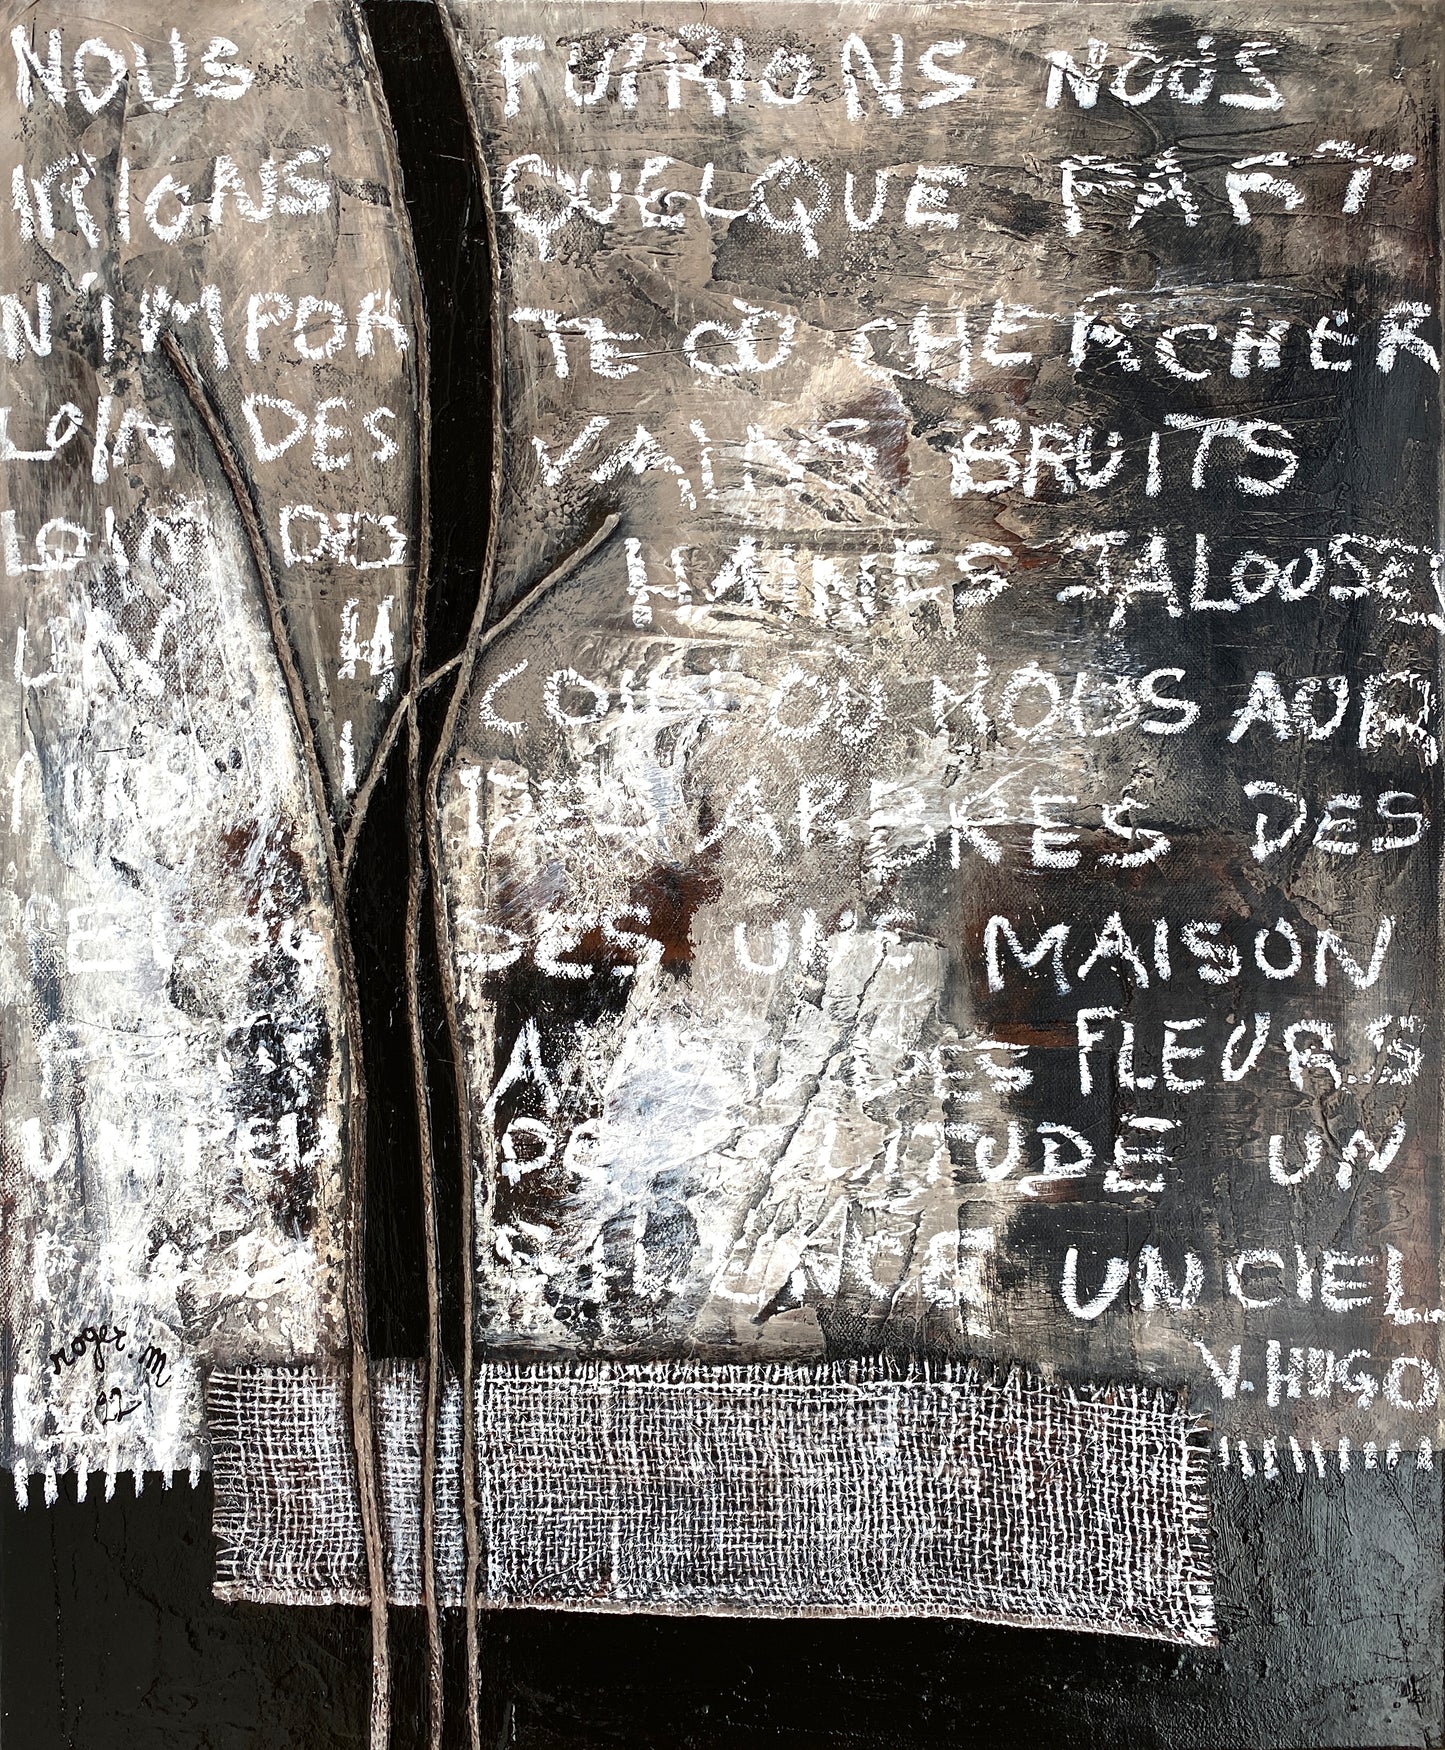 NOUS FUIRIONS NOUS
IRIONS QUELQUE PART
N'IMPORTE OÙ CHERCHER
LOIN DES VAINS BRUITS
LOIN DES HAINES JALOUSES
UN COIN OÙ NOUS AUR
ARBRES DES
UNE MAISON
DES FLEURS
UN PEU SOLITUDE UN
SILENCE UN CIEL
V. HUGO
roger. m
22